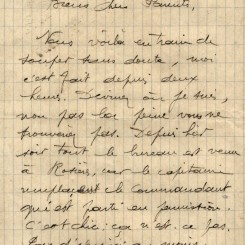 Biens chers Parents,
Vous voilà en train de
souper sans doute, moi
c'est fait depuis deux
heures. Devinez où je suis,
non pas la peine vous ne
trouverez pas. Depuis hier
soir tout le bureau est venu
à car le capitaine
remplaçant le commandant
qui est parti en permission.
C'est chic ça n'est-ce pas.